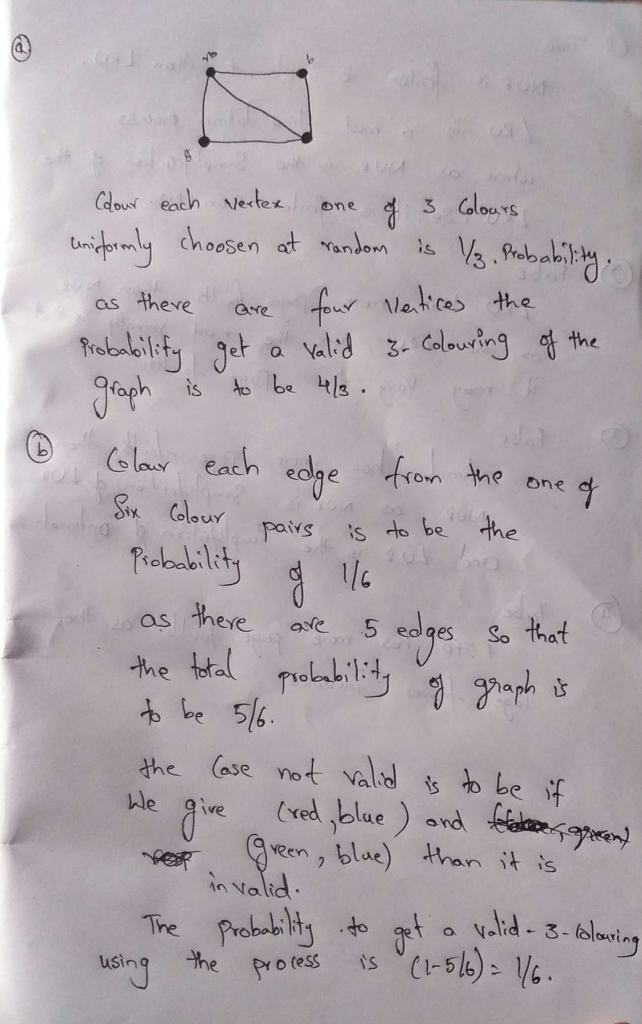 a
b
g
Colour each vertex one of 3 Colours
uniformly choosen at random is 1/3. Probability.
as there are four Vertices the
Probability get a valid 3-Colouring of the
graph is to be 4/3.
b
Colour each edge from the one of
Six Colour pairs is to be the
Probability of 1/6
as there are 5 edges so that
the total probability of graph is
to be 5/6.
the Case not valid is to be if
We give (red, blue) and
(green, blue) than it is
invalid.
The probability to get a valid-3-Colouring
using the process is (1-5/6) = 1/6.